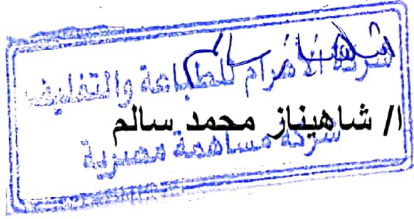 شركة الأهرام للطباعة والتغليف
ا/ شاهيناز محمد سالم
شركة مساهمة مصرية